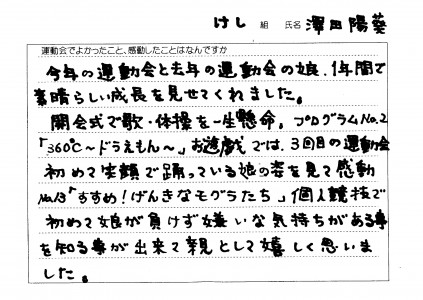 けし 組 氏名 澤田陽葵
運動会でよかったこと、感動したことはなんですか
今年の運動会と去年の運動会の娘、1年間で
素晴らしい成長を見せてくれました。
開会式で歌・体操を一生懸命。プログラムNo.2
「360℃〜ドラえもん〜」お遊戯では、3回目の運動会
初めて笑顔で踊っている娘の姿を見て感動
No.13「すすめ!げんきなモグラたち」個人競技で
初めて娘が負けず嫌いな気持ちがある事
を知る事が出来て親として嬉しく思いま
した。